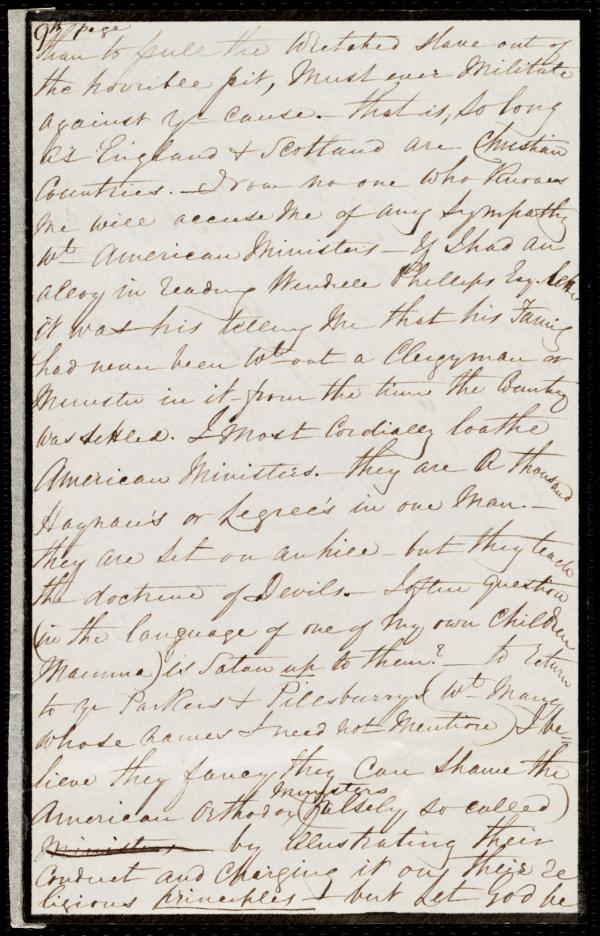 9th page
than to pull the wretched slave out of
the horrible pit, must ever militate
against yr cause. - that is, so long
as England & Scotland are Christian
Countries. - Now no one who knows
me will accuse me of any sympathy
wt American Ministers - If I had an
alloy in reading Wendell Phillips Esq. letter
it was his telling me that his Family
had never been wt out a Clergyman or
Minister in it - from the time the Country
was settled. I most cordially loathe
American Ministers. - they are a thousand
Haynau's or Legree's in one man. -
they are set on an hill - but they teach
the doctrine of Devils. - I often question
(in the language of one of my own children
Mamma) is Satan up to them? - to return
to yr Parkers & Pillsburrys (wt many
whose names I need not mention) I be=
lieve they fancy they can shame the
American Orthodox Ministers (falsely so called)
Ministers by illustrating their
conduct and charging it on their re
ligious principles - but let God be